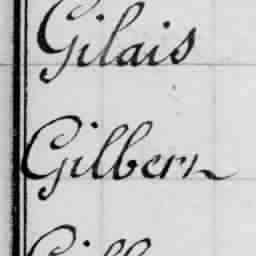 Gilais
Gilbern